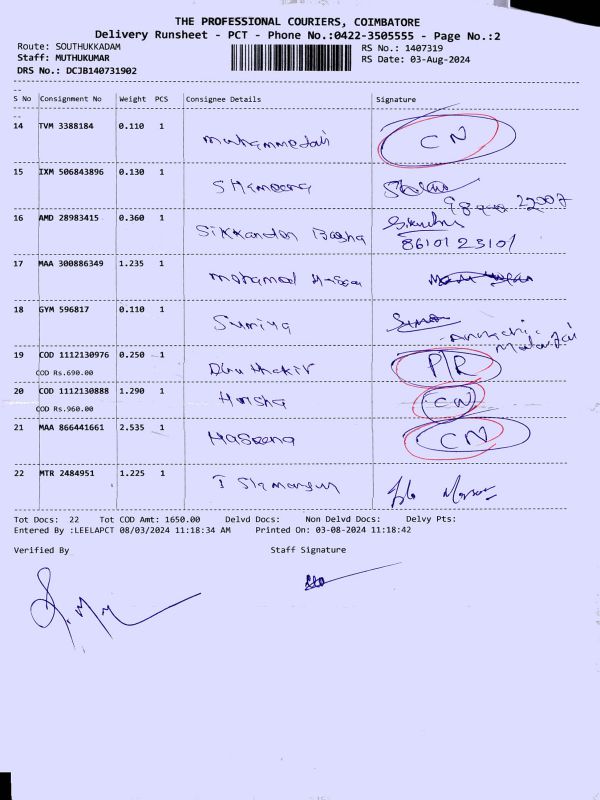 THE PROFESSIONAL COURIERS, COIMBATORE
Delivery Runsheet - PCT - Phone No.:0422-3505555 - Page No.:2
Route: SOUTHUKKADAM
RS No.: 1407319
Staff: MUTHUKUMAR
RS Date: 03-Aug-2024
DRS No.: DCJB140731902
S No Consignment No Weight PCS Consignee Details Signature
14 TVM 3388184 0.110 1 Muhammedali CN
15 IXM 506843896 0.130 1 Shameena
22007
16 AMD 28983415 0.360 1 Sikkandar Basha
8610123101
17 MAA 300886349 1.235 1 Mohamed Hassan
18 GYM 596817 0.110 1 Sumiya
19 COD 1112130976 0.250 1 Abuthakir P/R
COD Rs.690.00
20 COD 1112130888 1.290 1 Harsha CN
COD Rs.960.00
21 MAA 866441661 2.535 1 Haseena CN
22 MTR 2484951 1.225 1
Tot Docs: 22 Tot COD Amt: 1650.00 Delvd Docs: Non Delvd Docs: Delvy Pts:
Entered By :LEELAPCT 08/03/2024 11:18:34 AM Printed On: 03-08-2024 11:18:42
Verified By Staff Signature